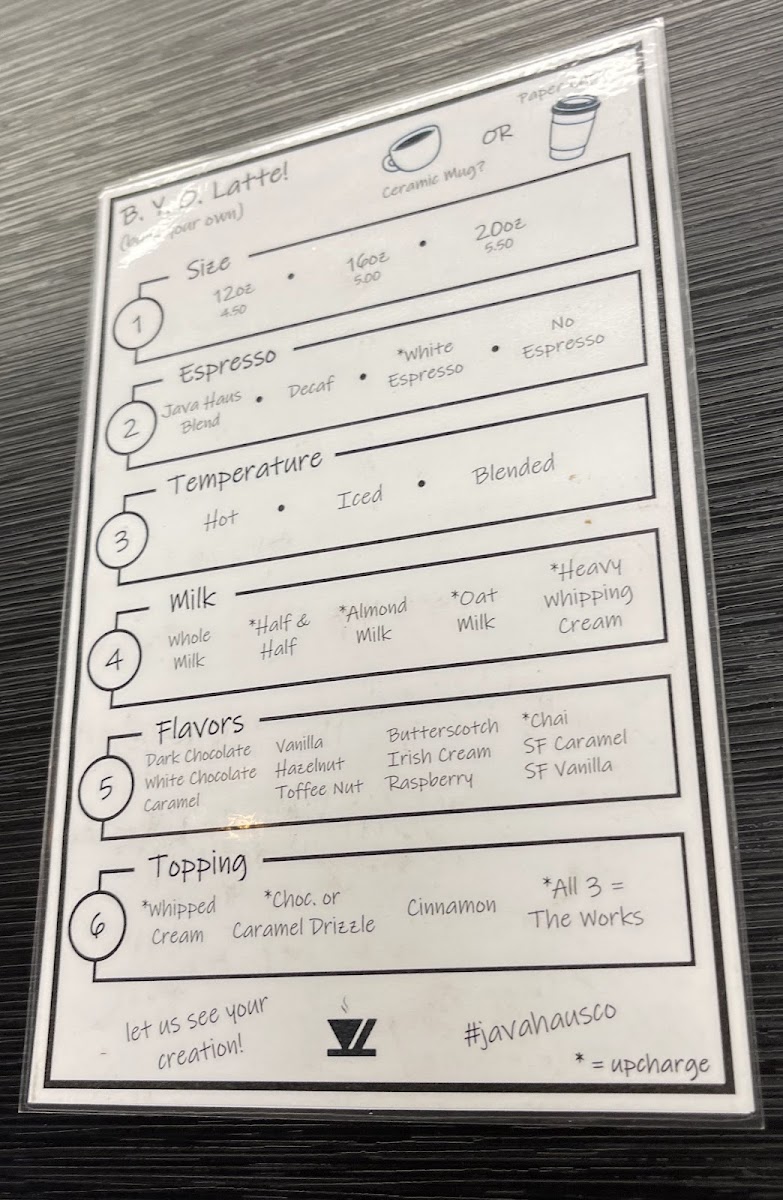 Paper
B. Y. O. Latte!
OR
Ceramic Mug?
your own)
Size
1
12oz • 16oz • 20oz
4.50 5.00 5.50
Espresso
2
Java Haus Blend • Decaf • *White Espresso • No Espresso
Temperature
3
Hot • Iced • Blended
Milk
4
Whole Milk
*Half & Half
*Almond Milk
*Oat Milk
*Heavy Whipping Cream
Flavors
5
Dark Chocolate
White Chocolate
Caramel
Vanilla
Hazelnut
Toffee Nut
Butterscotch
Irish Cream
Raspberry
*Chai
SF Caramel
SF Vanilla
Topping
6
*Whipped Cream
*Choc. or Caramel Drizzle
Cinnamon
*All 3 = The Works
let us see your
creation!
#javahausco
* = upcharge